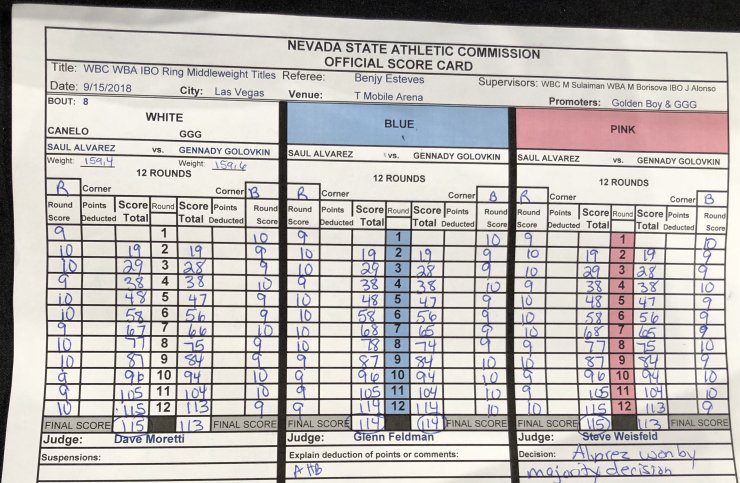 NEVADA STATE ATHLETIC COMMISSION
OFFICIAL SCORE CARD
Title: WBC WBA IBO Ring Middleweight Titles Referee: Benjy Esteves Supervisors: WBC M Sulaiman WBA M Borisova IBO J Alonso
Date: 9/15/2018 City: Las Vegas Venue: T Mobile Arena Promoters: Golden Boy & GGG
BOUT: 8
WHITE BLUE PINK
CANELO GGG
SAUL ALVAREZ vs. GENNADY GOLOVKIN SAUL ALVAREZ vs. GENNADY GOLOVKIN SAUL ALVAREZ vs. GENNADY GOLOVKIN
Weight: 159.4 Weight: 159.6
12 ROUNDS 12 ROUNDS 12 ROUNDS
R Corner Corner B R Corner Corner B R Corner Corner B
Round Score Points Deducted Score Total Round Score Total Points Deducted Round Score Round Score Points Deducted Score Total Round Score Total Points Deducted Round Score Round Score Points Deducted Score Total Round Score Total Points Deducted Round Score
9 1 10 9 1 10 9 1 10
10 19 2 19 9 10 19 2 19 9 10 19 2 19 9
10 29 3 28 9 10 29 3 28 9 10 29 3 28 9
9 38 4 38 10 9 38 4 38 10 9 38 4 38 10
10 48 5 47 9 10 48 5 47 9 10 48 5 47 9
10 58 6 56 9 10 58 6 56 9 10 58 6 56 9
9 67 7 66 10 10 68 7 65 9 10 68 7 65 9
10 77 8 75 9 10 78 8 74 9 9 77 8 75 10
10 87 9 84 9 9 87 9 84 10 10 87 9 84 9
9 96 10 94 10 9 96 10 94 10 9 96 10 94 10
9 105 11 104 10 9 105 11 104 10 9 105 11 104 10
10 115 12 113 9 9 114 12 114 10 10 115 12 113 9
FINAL SCORE 115 113 FINAL SCORE FINAL SCORE 114 114 FINAL SCORE FINAL SCORE 115 113 FINAL SCORE
Judge: Dave Moretti Judge: Glenn Feldman Judge: Steve Weisfeld
Suspensions: Explain deduction of points or comments: Decision: Alvarez won by
majority decision